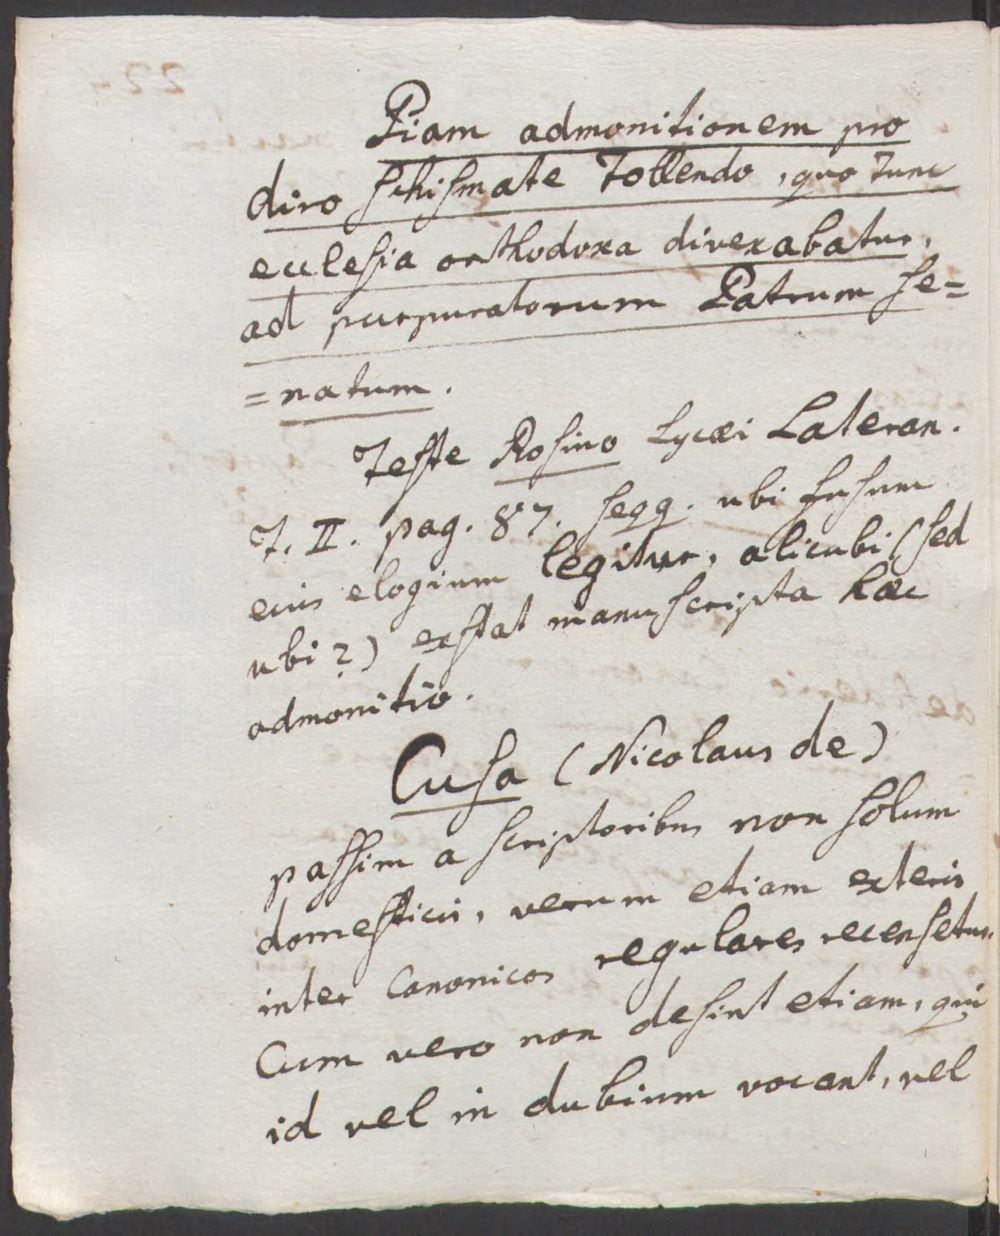 Piam admonitionem pro
diro schismate tollendo, quo tunc
ecclesia orthodoxa divexabatur,
ad purpuratorum Patrum se=
=natum.
Teste Rosino Lycæi Lateran.
T. II. pag. 87. seqq. ubi fusum
eius elogium legitur, alicubi (sed
ubi?) exstat manuscripta hæc
admonitio.
Cusa (Nicolaus de)
passim a scriptoribus non solum
domesticis, verum etiam exteris
inter Canonicos regulares recensetur.
Cum vero non desint etiam, qui
id vel in dubium vocant, vel